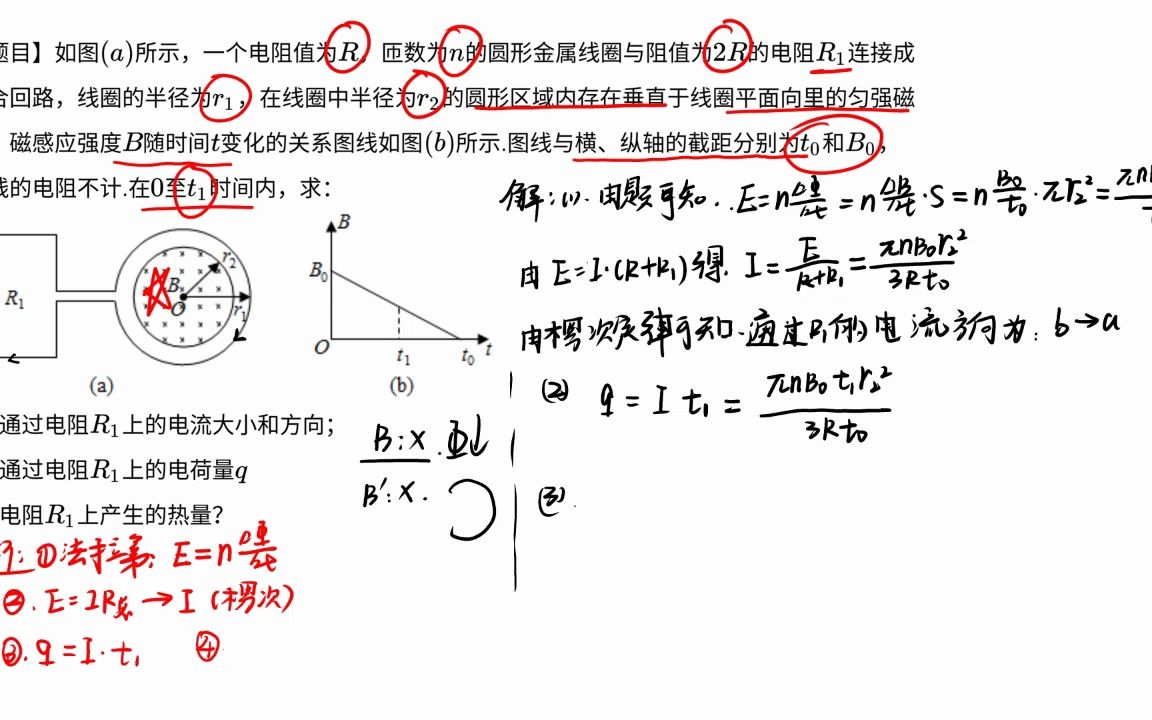 题目】如图(a)所示，一个电阻值为R，匝数为n的圆形金属线圈与阻值为2R的电阻R₁连接成
合回路，线圈的半径为r₁，在线圈中半径为r₂的圆形区域内存在垂直于线圈平面向里的匀强磁
，磁感应强度B随时间t变化的关系图线如图(b)所示.图线与横、纵轴的截距分别为t₀和B₀，
线的电阻不计.在0至t₁时间内，求：
R₁
B
O
r₂
r₁
(a)
B
B₀
O
t₁
t₀
t
(b)
通过电阻R₁上的电流大小和方向；
通过电阻R₁上的电荷量q
电阻R₁上产生的热量？
①法拉第: E=nΔΦ/Δt
②. E=IR总→I (楞次)
③. q=I·t₁ ④
B:×.Φ↓
B′:×.
解:(1).由题可知. E=nΔΦ/Δt=nΔB/Δt·S=nB₀/t₀·πr₂²=
由E=I·(R+R₁)得. I=E/(R+R₁)=πnB₀r₂²/3Rt₀
由楞次定律可知.通过R₁的电流方向为: b→a
(2) q=It₁=πnB₀t₁r₂²/3Rt₀
(3).